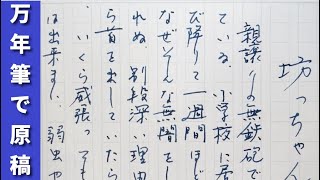 坊っちゃん
親譲りの無鉄砲で
ている。小学校に居
び降りて一週間ほど
なぜそんな無闇をし
れぬ。別段深い理由
ら首を出していたら
、いくら威張っても
は出来まい。弱虫や
万年筆で原稿